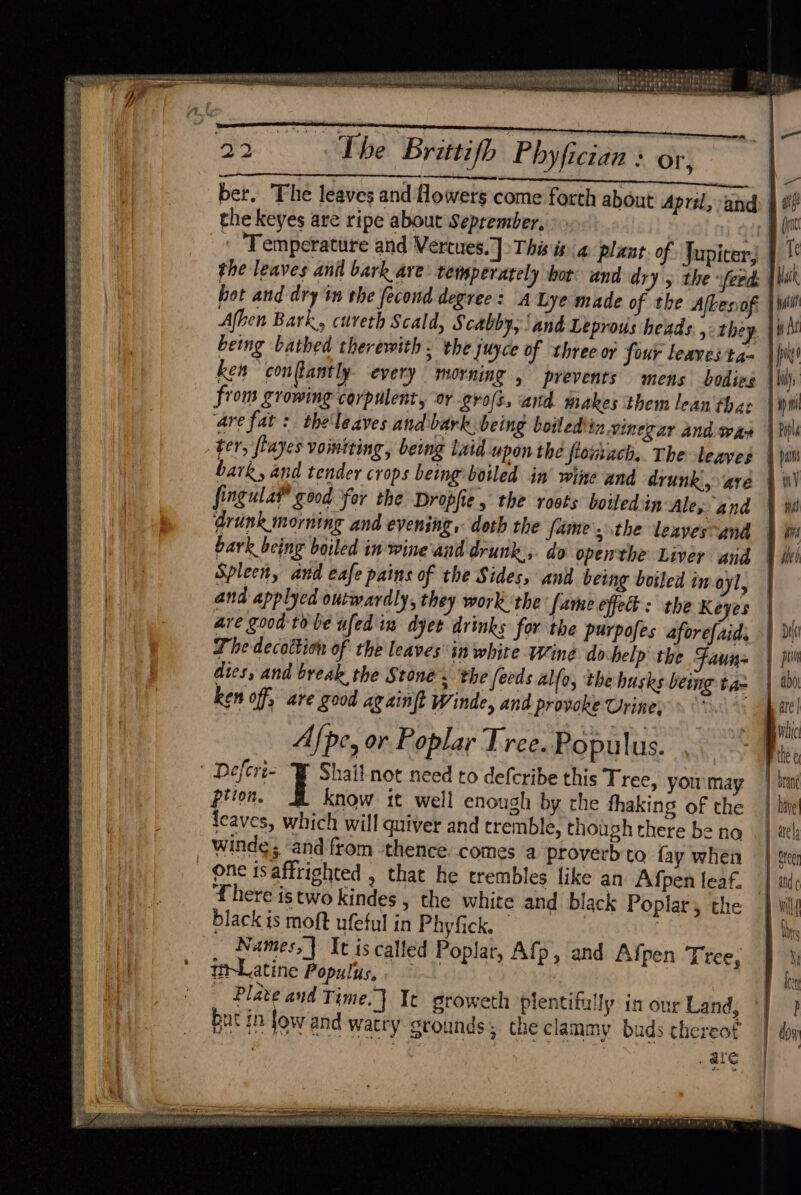 22 The Brittish Physician : or,
ber. The leaves and flowers come forth about April, and
the keyes are ripe about September.
Temperature and Vertues.] This is a plant of Jupiter;
the leaves and bark are temperately hot and dry, the seed
hot and dry in the second degree: A Lye made of the Ashes of
Ashen Bark, cureth Scald, Scabby, and Leprous heads, they
being bathed therewith; the juyce of three or four leaves ta-
ken constantly every morning, prevents mens bodies
from growing corpulent, or gross, and makes them lean that
are fat : the leaves and bark being boiled in vinegar and wa-
ter, stayes vomitting, being laid upon the stomach. The leaves
bark, and tender crops being boiled in wine and drunk, are
singular good for the Dropsie, the roots boiled in Ale, and
drunk morning and evening, doth the same; the leaves and
bark being boiled in wine and drunk, do open the Liver and
Spleen, and ease pains of the Sides, and being boiled in oyl,
and applyed outwardly, they work the same effect: the Keyes
are good to be used in dyet drinks for the purposes aforesaid,
The decoction of the leaves in white Wine do help the Jaun-
dies, and break the Stone; the seeds also, the husks being ta-
ken off, are good against Winde, and provoke Urine,
Aspe, or Poplar Tree. Populus.
Descri- I Shall not need to describe this Tree, you may
ption. know it well enough by the shaking of the
leaves, which will quiver and tremble, though there be no
winde; and from thence comes a proverb to say when
one is affrighted, that he trembles like an Aspen leaf.
There is two kindes, the white and black Poplar, the
black is most useful in Physick.
Names,] It is called Poplar, Asp, and Aspen Tree,
in Latine Populus.
Place and Time.] It groweth plentifully in our Land,
but in low and watry grounds; the clammy buds thereof
are